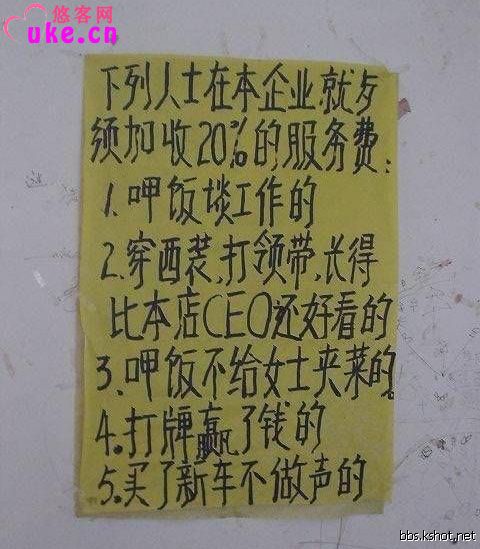 悠客网
uke.cn
下列人士在本企业就歺
须加收20%的服务费:
1.呷饭谈工作的
2.穿西装,打领带,长得
比本店CEO还好看的
3.呷饭不给女士夹菜的。
4.打牌赢了钱的
5.买了新车不做声的
bbs.kshot.net